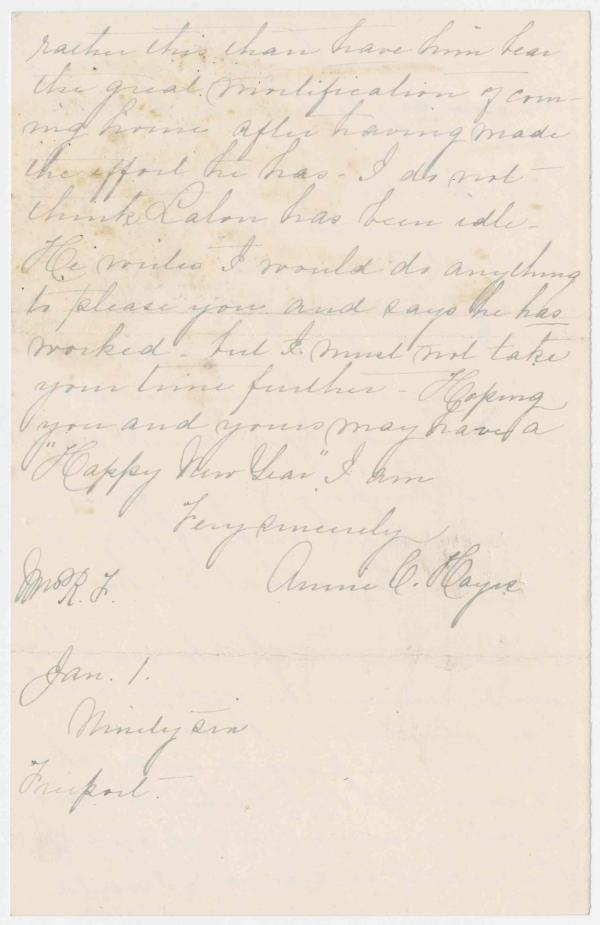 rather this than have him bear
the great mortification of com-
ing home after having made
the effort he has - I do not
think Lalon has been idle -
He writes I would do anything
to please you and says he has
worked - but I must not take
your time further - Hoping
you and yours may have a
"Happy New Year" I am
Very sincerely
Annie C. Hayes
Mrs R. F.
Jan. 1.
Ninety six
Freeport.